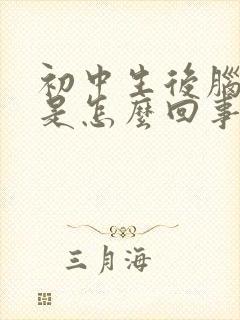 初中生後腦
是怎麼回事
三月海